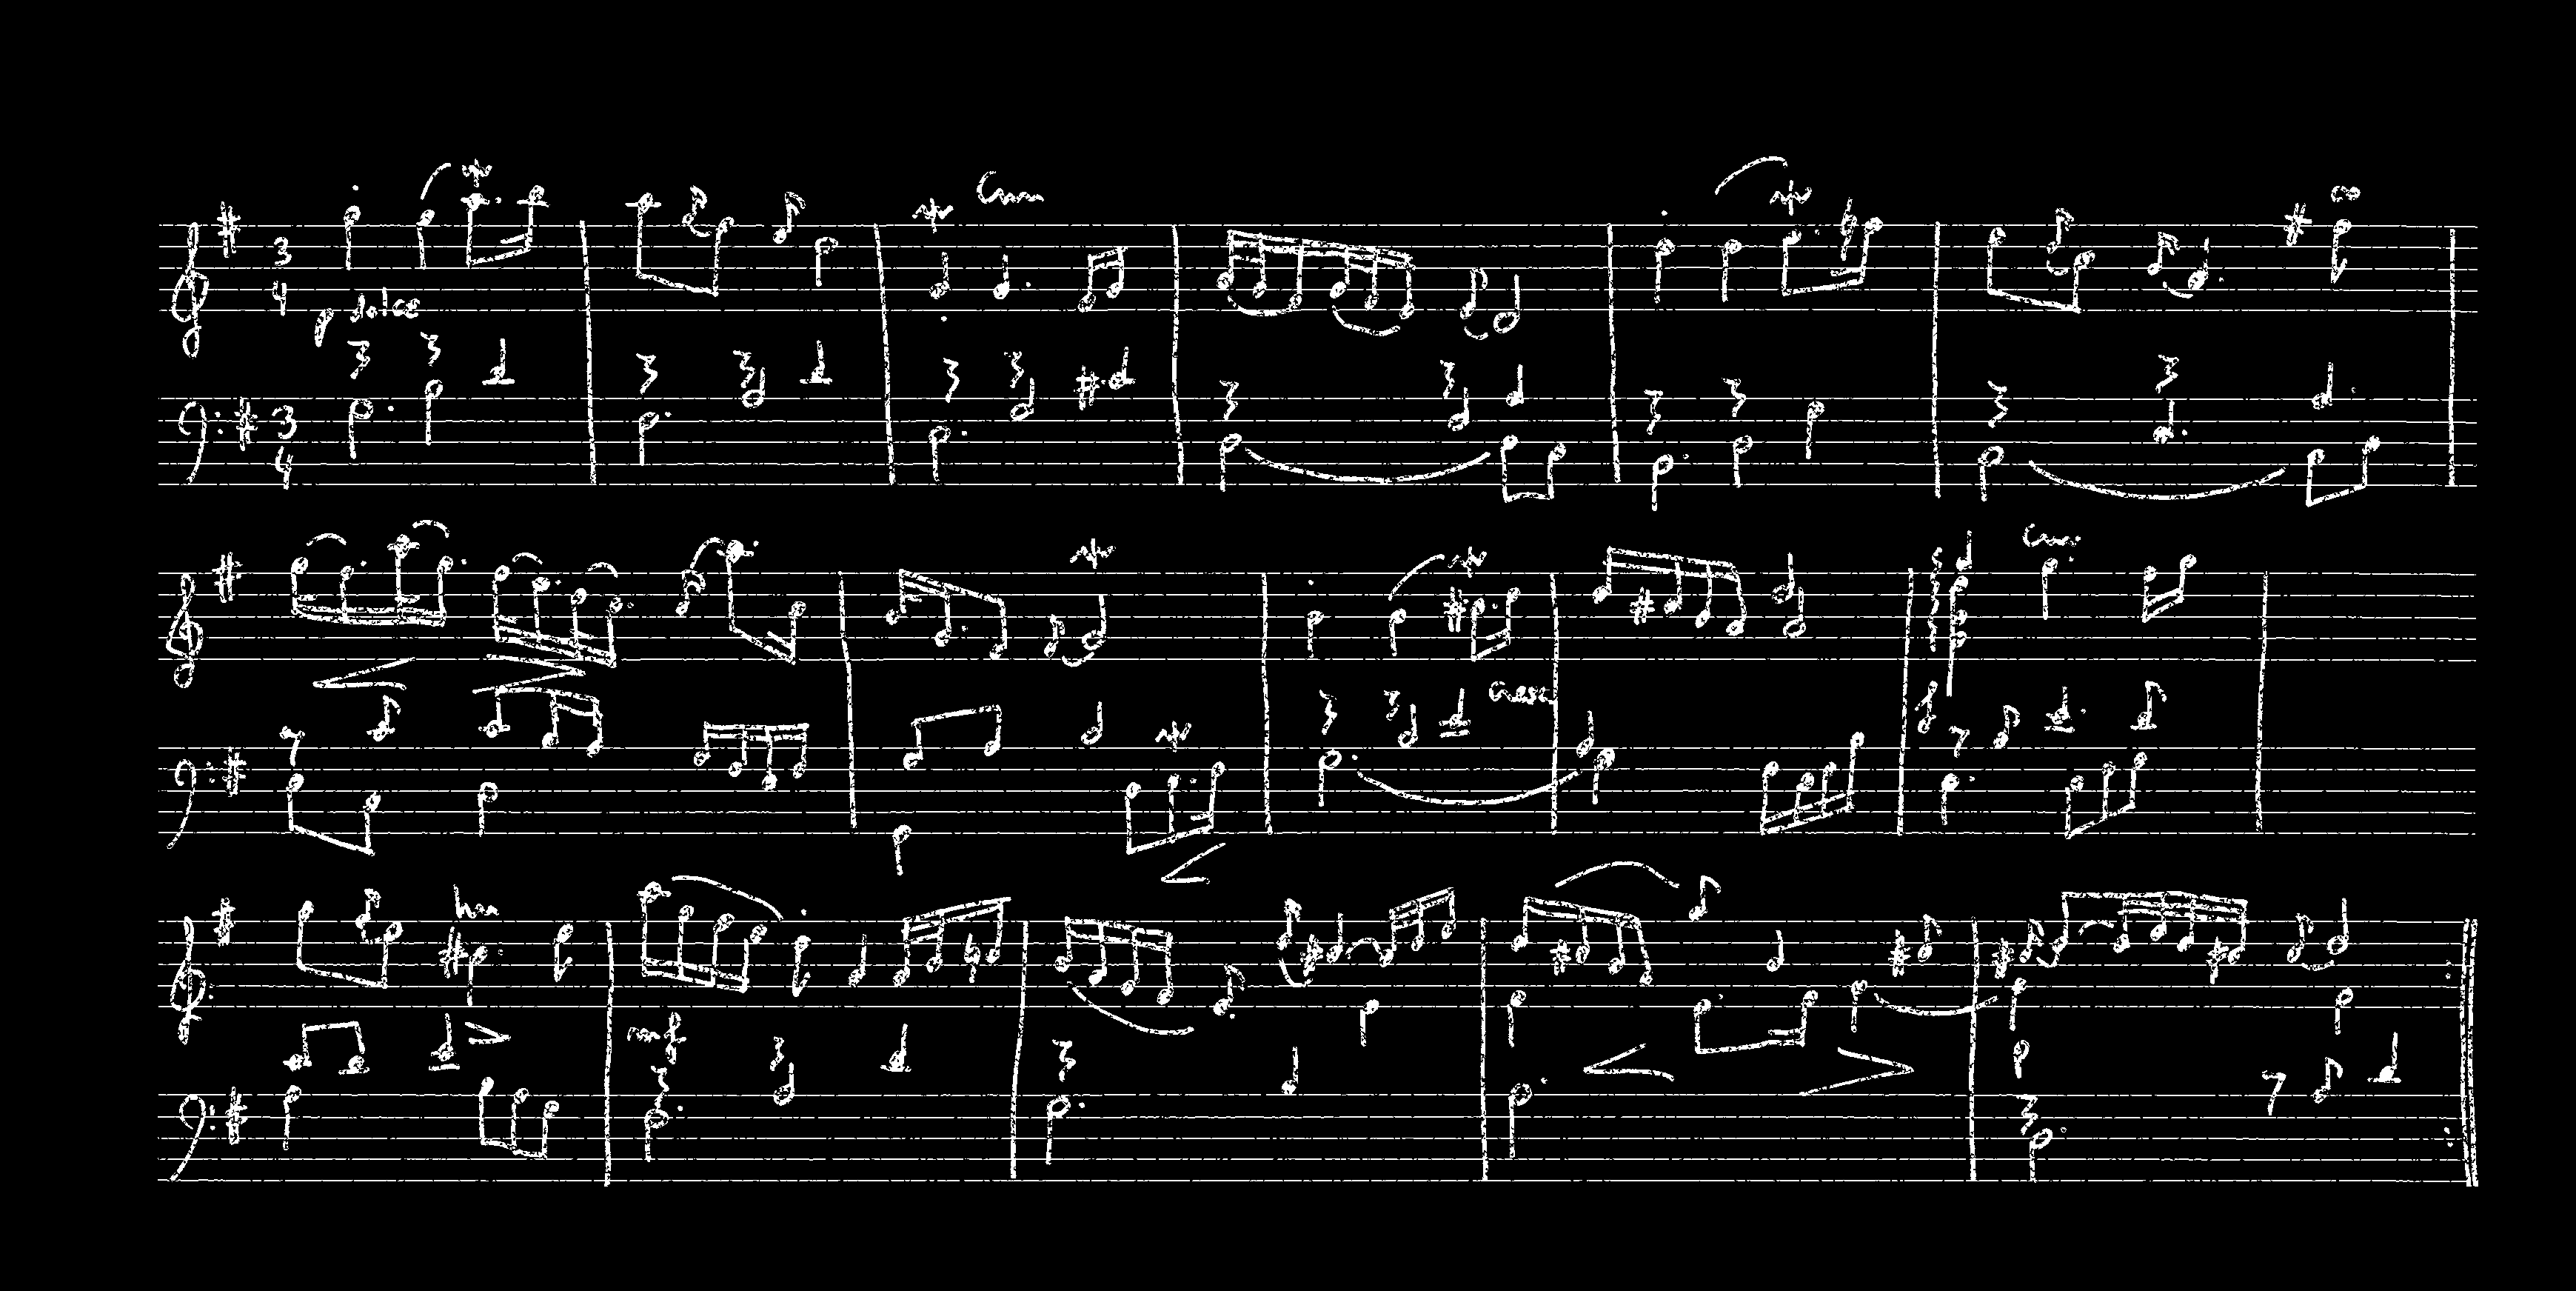 3
4
p dolce
3
4
cresc
f
mf